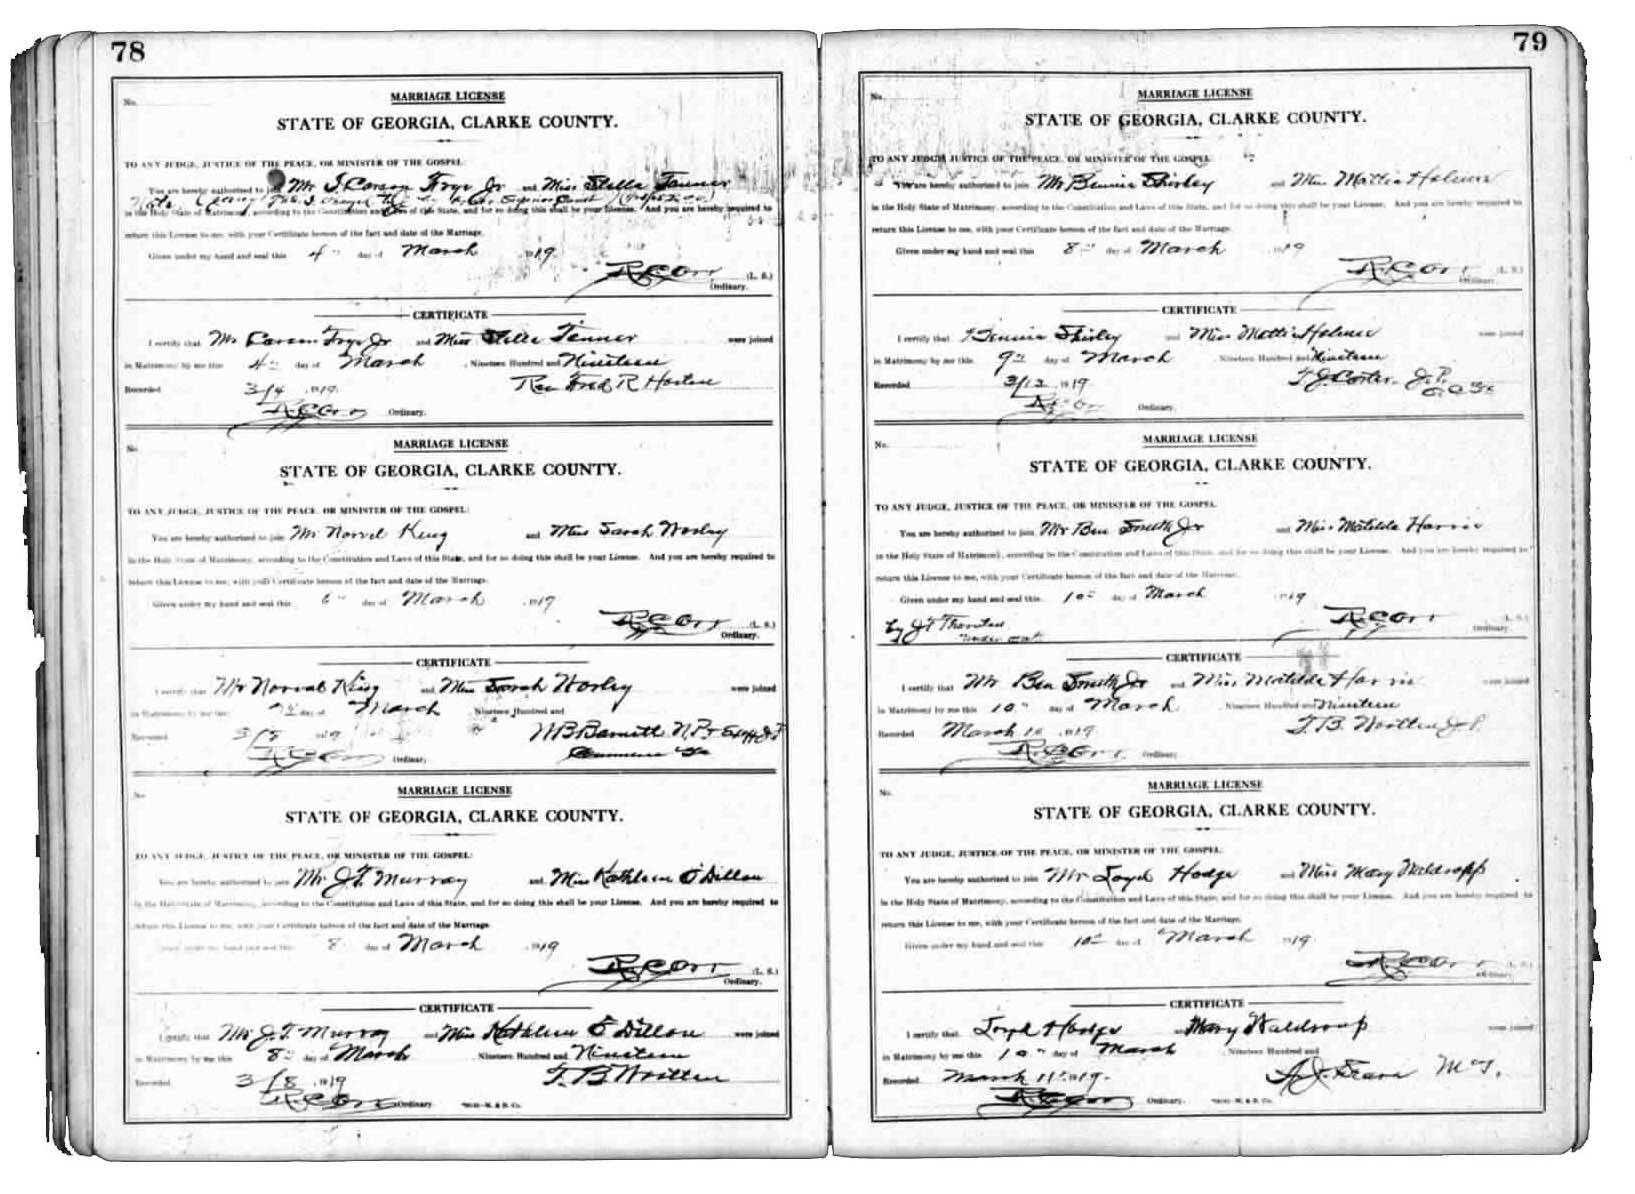 78
No.
MARRIAGE LICENSE
STATE OF GEORGIA, CLARKE COUNTY.
TO ANY JUDGE, JUSTICE OF THE PEACE, OR MINISTER OF THE GOSPEL:
You are hereby authorized to join Mr J. Carson Frye Jr and Miss Stella Tanner
in the Holy State of Matrimony, according to the Constitution and Laws of this State, and for so doing this shall be your License. And you are hereby required to
return this License to me, with your Certificate hereon of the fact and date of the Marriage.
Given under my hand and seal this 4" day of March 1919
R C Orr (L. S.)
Ordinary.
CERTIFICATE
I certify that Mr Carson Frye Jr and Miss Stella Tanner were joined
in Matrimony by me this 4" day of March, Nineteen Hundred and Nineteen
Recorded 3/4 1919. Rev Fred R
R C Orr Ordinary.
No.
MARRIAGE LICENSE
STATE OF GEORGIA, CLARKE COUNTY.
TO ANY JUDGE, JUSTICE OF THE PEACE, OR MINISTER OF THE GOSPEL:
You are hereby authorized to join Mr Norvel King and Miss Sarah Worley
in the Holy State of Matrimony, according to the Constitution and Laws of this State, and for so doing this shall be your License. And you are hereby required to
return this License to me, with your Certificate hereon of the fact and date of the Marriage.
Given under my hand and seal this 6" day of March 1919
R C Orr (L. S.)
Ordinary.
CERTIFICATE
I certify that Mr Norval King and Miss Sarah Worley were joined
in Matrimony by me this day of March Nineteen Hundred and
Recorded 3/8 1919 W B Barnett N.P.
R C Orr Ordinary.
No
MARRIAGE LICENSE
STATE OF GEORGIA, CLARKE COUNTY.
TO ANY JUDGE, JUSTICE OF THE PEACE, OR MINISTER OF THE GOSPEL:
You are hereby authorized to join Mr J. T. Murray and Miss Kathleen O'Dillon
in the Holy State of Matrimony, according to the Constitution and Laws of this State, and for so doing this shall be your License. And you are hereby required to
return this License to me, with your Certificate hereon of the fact and date of the Marriage.
Given under my hand and seal this 8 day of March 1919
R C Orr (L. S.)
Ordinary.
CERTIFICATE
I certify that Mr J. T. Murray and Miss Kathleen O'Dillon were joined
in Matrimony by me this 8" day of March Nineteen Hundred and Nineteen
Recorded 3/8 1919 T. B. Written
R C Orr Ordinary.
79
No.
MARRIAGE LICENSE
STATE OF GEORGIA, CLARKE COUNTY.
TO ANY JUDGE, JUSTICE OF THE PEACE, OR MINISTER OF THE GOSPEL
You are hereby authorized to join Mr Bennie Shirley and Miss Mattie Holmes
in the Holy State of Matrimony, according to the Constitution and Laws of this State, and for so doing this shall be your License. And you are hereby required to
return this License to me, with your Certificate hereon of the fact and date of the Marriage.
Given under my hand and seal this 8" day of March 1919
R C Orr (L. S.)
Ordinary.
CERTIFICATE
I certify that Bennie Shirley and Miss Mattie Holmes were joined
in Matrimony by me this 9" day of March, Nineteen Hundred and Nineteen
Recorded 3/12 1919. T. J. Carter J.P.
R C Orr Ordinary.
No.
MARRIAGE LICENSE
STATE OF GEORGIA, CLARKE COUNTY.
TO ANY JUDGE, JUSTICE OF THE PEACE, OR MINISTER OF THE GOSPEL
You are hereby authorized to join Mr Ben Smith Jr and Miss Matilda Harris
in the Holy State of Matrimony, according to the Constitution and Laws of this State, and for so doing this shall be your License. And you are hereby required to
return this License to me, with your Certificate hereon of the fact and date of the Marriage.
Given under my hand and seal this 10" day of March 1919
R C Orr (L. S.)
Ordinary.
by J T Thornton
CERTIFICATE
I certify that Mr Ben Smith Jr and Miss Matilda Harris were joined
in Matrimony by me this 10" day of March, Nineteen Hundred and Nineteen
Recorded March 10 1919. T. B. Written J.P.
R C Orr Ordinary.
No.
MARRIAGE LICENSE
STATE OF GEORGIA, CLARKE COUNTY.
TO ANY JUDGE, JUSTICE OF THE PEACE, OR MINISTER OF THE GOSPEL:
You are hereby authorized to join Mr Loyd Hodge and Miss Mary Waldropp
in the Holy State of Matrimony, according to the Constitution and Laws of this State, and for so doing this shall be your License. And you are hereby required to
return this License to me, with your Certificate hereon of the fact and date of the Marriage.
Given under my hand and seal this 10" day of March 1919.
R C Orr (L. S.)
Ordinary.
CERTIFICATE
I certify that Loyd Hodge and Mary Waldroop were joined
in Matrimony by me this 10" day of March, Nineteen Hundred and
Recorded March 11" 1919. M G.
R C Orr Ordinary.